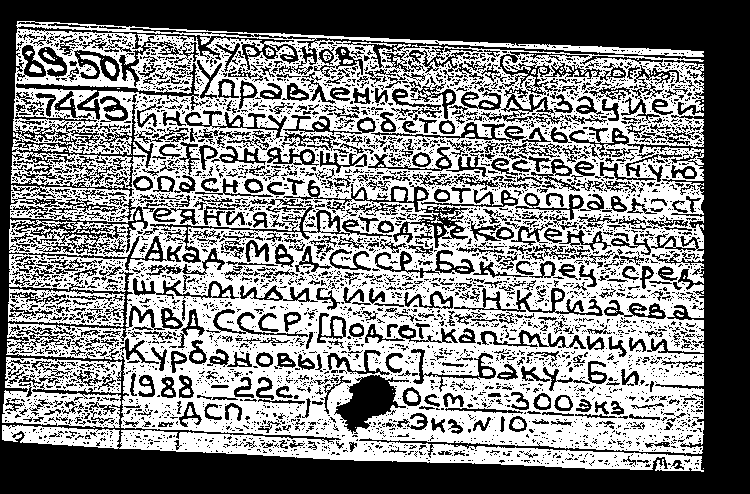 89-50К
7443
Курбанов, Г.
Управление реализацией
института обстоятельств
устраняющих общественную
опасность и противоправность
деяния. (Метод рекомендации)
/Акад МВД СССР, Бак. спец. сред.
шк милиции им Н.К.Ризаева
МВД СССР; [Подгот. кап. милиции
Курбановым Г.С.] — Баку: Б.и.,
1988. - 22с., Ост. - 300экз.
ДСП. Экз. N 10.